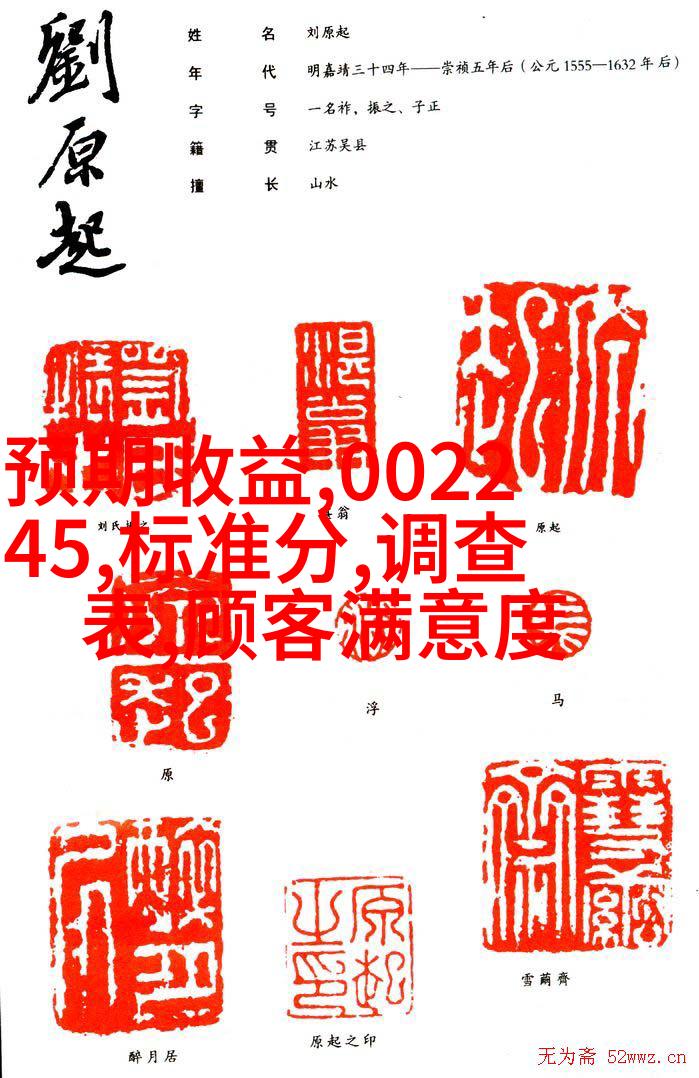 劉原起
姓 名 刘原起
年 代 明嘉靖三十四年——崇祯五年后（公元1555—1632年后）
字 号 一名祚，振之、子正
籍 贯 江苏吴县
擅 长 山水
预期收益,0022
45,标准分,调查
表,顾客满意度
刘氏
翁
原起
浮
马
原
雪蕳齊
醉月居
原起之印
原起之印
无为斋 52wwz.cn